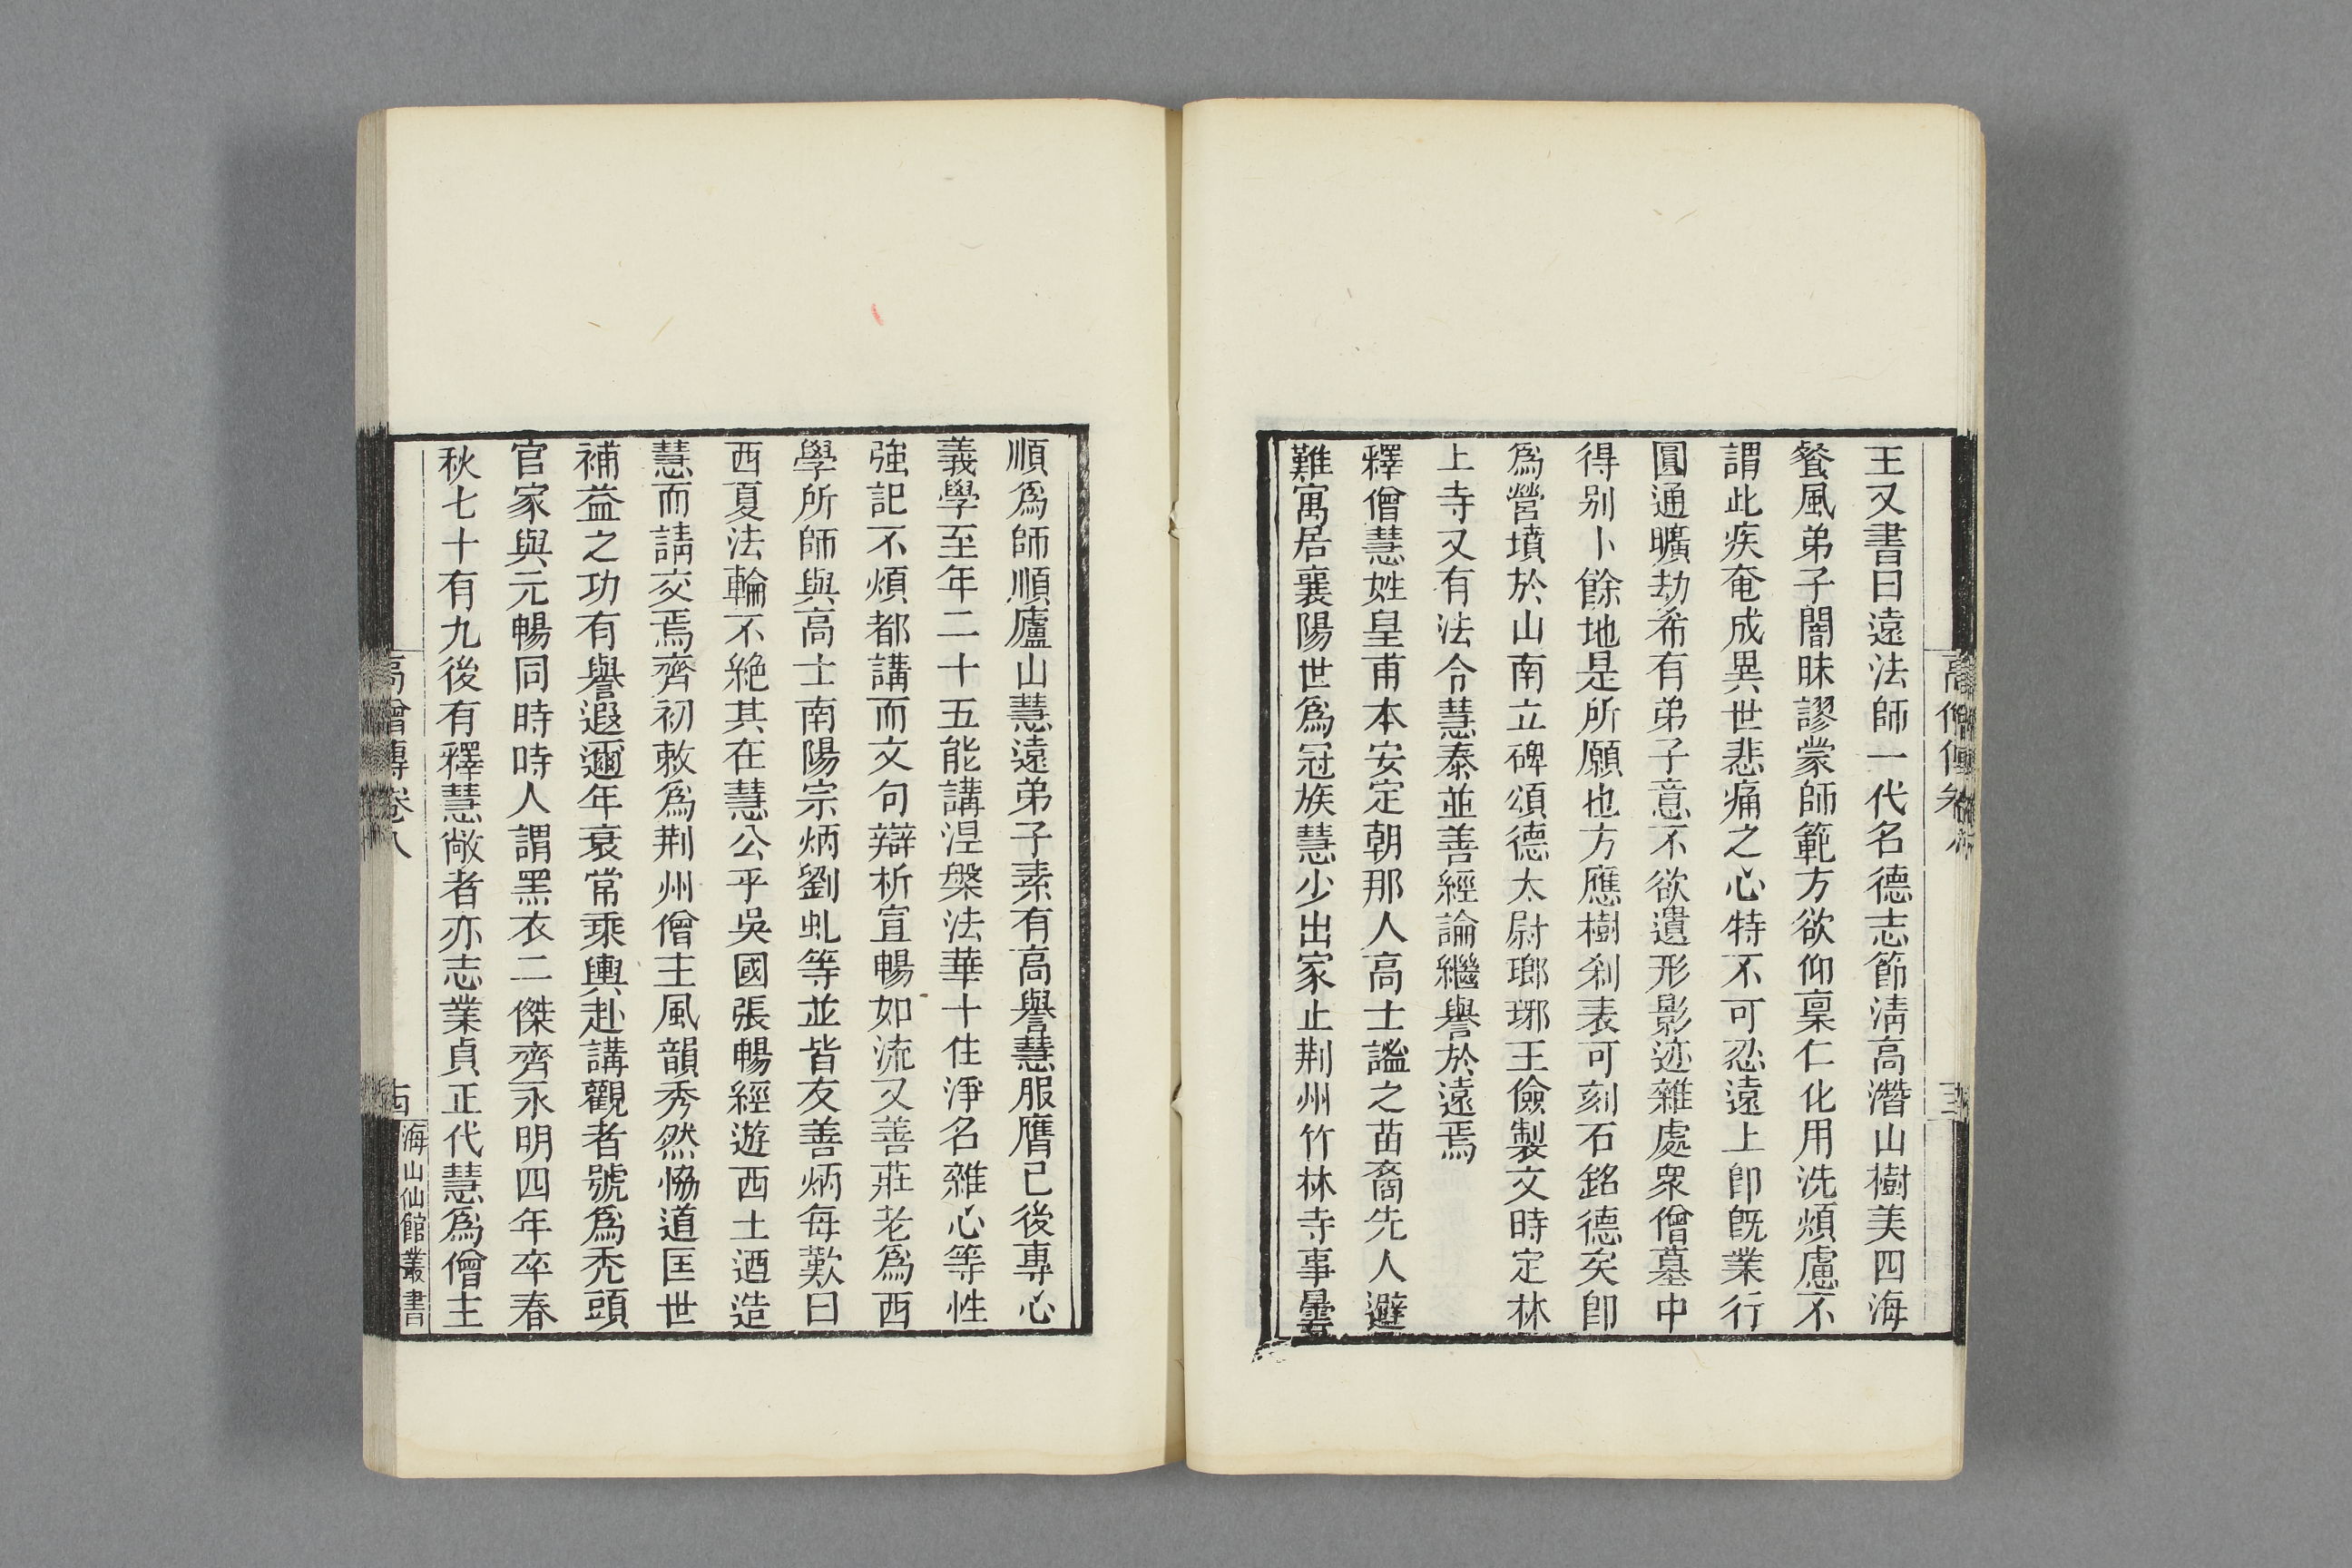 王又書曰遠法師一代名德志節淸高潛山樹美四海
餐風弟子闇昧謬蒙師範方欲仰稟仁化用洗煩慮不
謂此疾奄成異世悲痛之心特不可忍遠上卽旣業行
圓通曠劫希有弟子意不欲遺形影迹雜處衆僧墓中
得别卜餘地是所願也方應樹刹表可刻石銘德矣卽
爲營墳於山南立碑頌德太尉瑯琊王儉製文時定林
上寺又有法令慧泰並善經論繼譽於遠焉
釋僧慧姓皇甫本安定朝那人高士謐之苗裔先人避
難寓居襄陽世爲冠族慧少出家止荆州竹林寺事曇
順爲師順廬山慧遠弟子素有高譽慧服膺已後專心
義學至年二十五能講涅槃法華十住淨名雜心等性
強記不煩都講而文句辯析宣暢如流又善莊老爲西
學所師與高士南陽宗炳劉虬等並皆友善炳每歎曰
西夏法輪不絶其在慧公乎吳國張暢經遊西土迺造
慧而請交焉齊初敕爲荆州僧主風韻秀然恊道匡世
補益之功有譽遐邇年衰常乘輿赴講觀者號爲禿頭
官家與元暢同時時人謂黑衣二傑齊永明四年卒春
秋七十有九後有釋慧敞者亦志業貞正代慧爲僧主
高僧傳卷八
海山仙館叢書